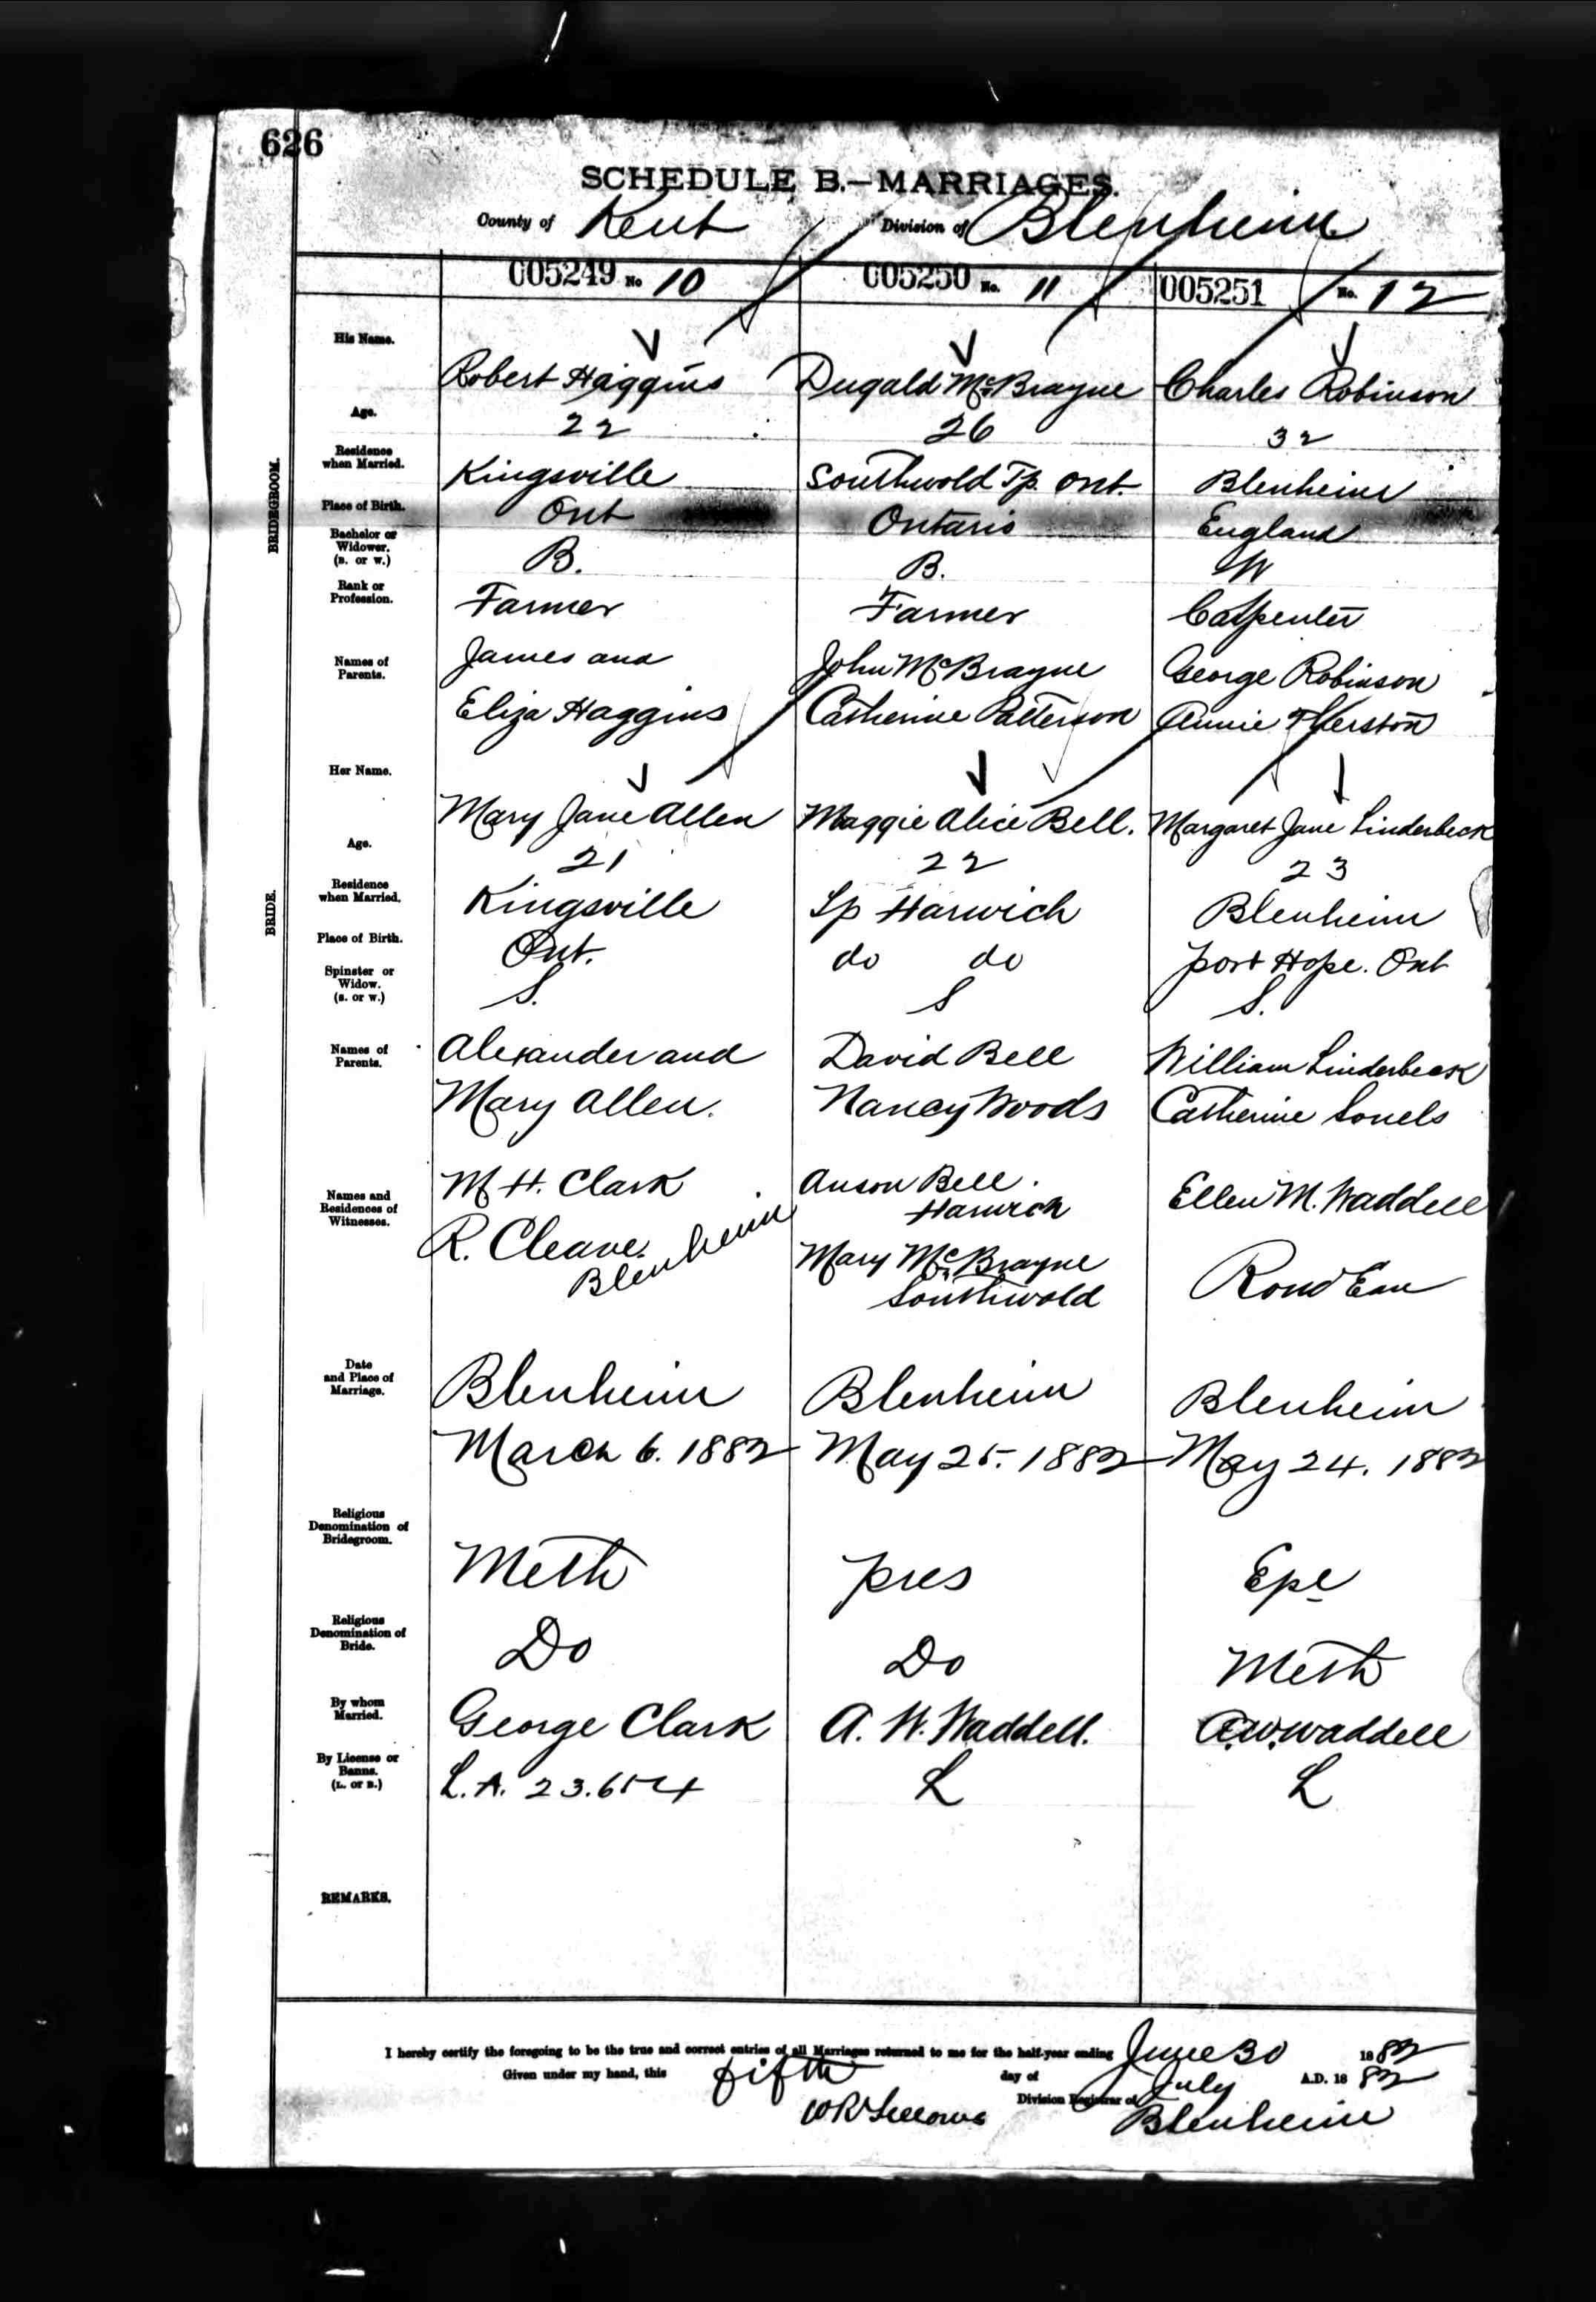 626
SCHEDULE B.—MARRIAGES.
County of Kent Division of Blenheim
005249 No 10 005250 No. 11 005251 No. 12
His Name.
Robert Haggins Dugald McBrayne Charles Robinson
Age.
22 26 32
BRIDEGROOM.
Residence when Married.
Kingsville Southwold Tp. Ont. Blenheim
Place of Birth.
Ont Ontario England
Bachelor or Widower. (B. or W.)
B. B. W
Rank or Profession.
Farmer Farmer Carpenter
Names of Parents.
James and John McBrayne George Robinson
Eliza Haggins Catherine Patterson Annie
Her Name.
Mary Jane Allen Maggie Alice Bell. Margaret Jane Linderbeck
Age.
21 22 23
BRIDE.
Residence when Married.
Kingsville Tp Harwich Blenheim
Place of Birth.
Ont. do do Port Hope. Ont
Spinster or Widow. (S. or W.)
S. S S.
Names of Parents.
Alexander and David Bell William Linderbeck
Mary Allen. Nancy Woods Catherine
Names and Residences of Witnesses.
M H. Clark Anson Bell. Ellen M. Waddell
Harwich
R. Cleave. Mary McBrayne Rond Eau
Blenheim Southwold
Date and Place of Marriage.
Blenheim Blenheim Blenheim
March 6. 1882 May 25. 1882 May 24. 1882
Religious Denomination of Bridegroom.
Meth Pres Epl
Religious Denomination of Bride.
Do Do Meth
By whom Married.
George Clark A. W. Waddell. A.W. Waddell
By License or Banns. (L. or B.)
L. A. 23.654 L L
REMARKS.
I hereby certify the foregoing to be the true and correct entries of all Marriages returned to me for the half-year ending June 30 1882
Given under my hand, this fifth day of July A.D. 1882
W R Division Registrar of Blenheim